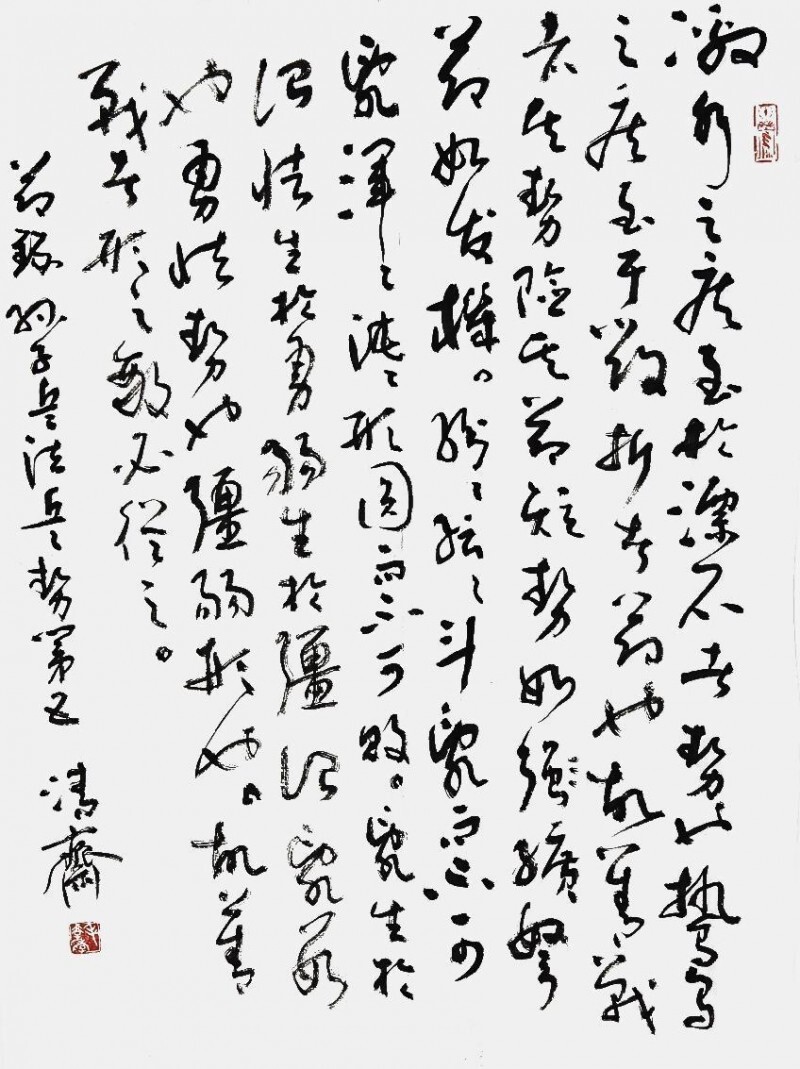 激水之疾至於漂石者勢也鷙鳥
之疾至于毀折者節也故善戰
者其勢險其節短勢如强彍弩
節如发機。紛々紜々斗亂而不可
亂渾々沌々形圓而不可敗。亂生於
治怯生於勇弱生於彊治亂數
也勇怯勢也彊弱形也。故善
戰者形之敵必從之。
節錄孫子兵法兵勢第五 清齋